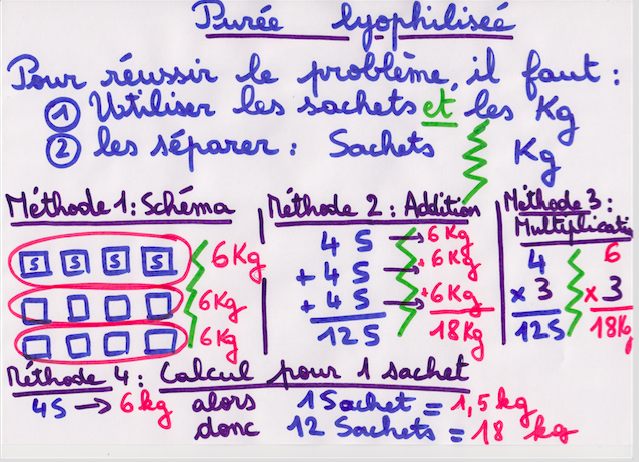 Purée lyophilisée
Pour réussir le problème, il faut :
① Utiliser les sachets et les Kg
② les séparer : Sachets Kg
Méthode 1 : Schéma
S S S S 6Kg
6Kg
6Kg
Méthode 2 : Addition
4 S → 6 Kg
+ 4 S → + 6 Kg
+ 4 S → + 6 Kg
12 S 18 Kg
Méthode 3 :
Multiplication
4 6
x 3 x 3
12 S 18 Kg
Méthode 4 : Calcul pour 1 sachet
4 S → 6 kg alors 1 Sachet = 1,5 kg
donc 12 Sachets = 18 kg